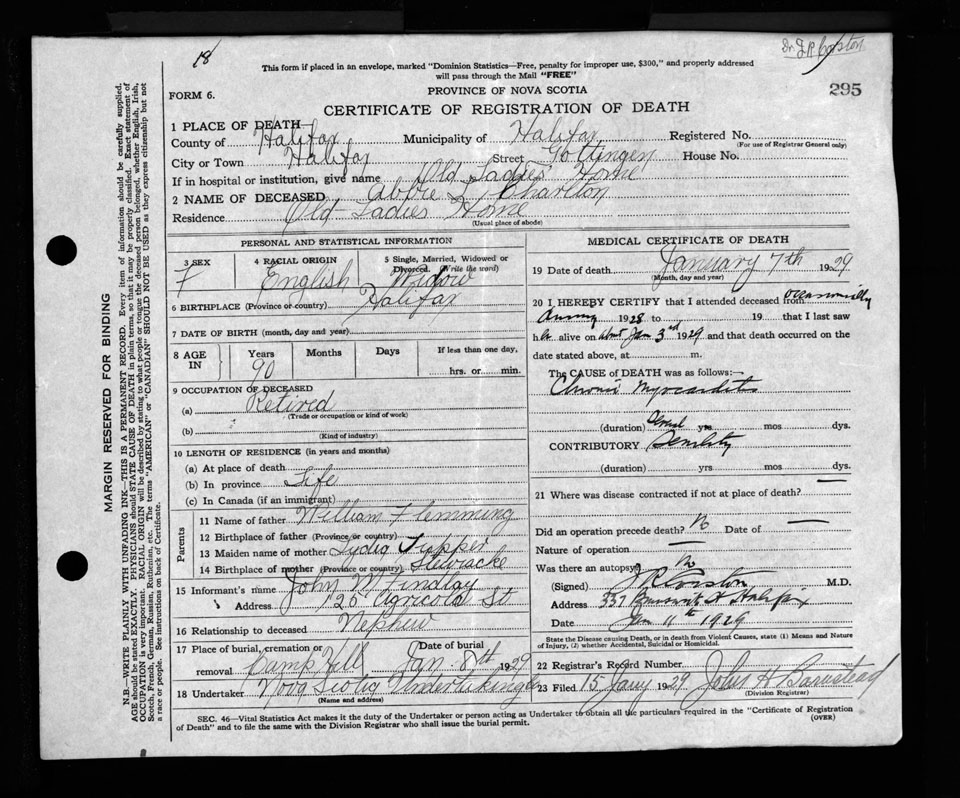 18
Dr. J R Corston
This form if placed in an envelope, marked "Dominion Statistics—Free, penalty for improper use, $300," and properly addressed
will pass through the Mail "FREE"
295
FORM 6.
PROVINCE OF NOVA SCOTIA
CERTIFICATE OF REGISTRATION OF DEATH
1 PLACE OF DEATH
County of Halifax Municipality of Halifax Registered No.
(For use of Registrar General only)
City or Town Halifax Street Gottingen House No.
If in hospital or institution, give name Old Ladies' Home
2 NAME OF DECEASED Abbie L Charlton
Residence Old Ladies Home
(Usual place of abode)
PERSONAL AND STATISTICAL INFORMATION
3 SEX 4 RACIAL ORIGIN 5 Single, Married, Widowed or
Divorced. (Write the word)
F English Widow
6 BIRTHPLACE (Province or country) Halifax
7 DATE OF BIRTH (month, day and year)
8 AGE IN Years Months Days If less than one day,
90 hrs. or min.
9 OCCUPATION OF DECEASED
(a) Retired
(Trade or occupation or kind of work)
(b)
(Kind of industry)
10 LENGTH OF RESIDENCE (in years and months)
(a) At place of death
(b) In province Life
(c) In Canada (if an immigrant)
Parents
11 Name of father William Flemming
12 Birthplace of father (Province or country)
13 Maiden name of mother Lydia Tupper
14 Birthplace of mother (Province or country) Stewiacke
15 Informant's name John M Findlay
Address 126 Agricola St
16 Relationship to deceased Nephew
17 Place of burial, cremation or Date of burial
removal Camp Hill Jan 8th 1929
18 Undertaker Nova Scotia Undertaking Co
(Name and address)
MEDICAL CERTIFICATE OF DEATH
19 Date of death January 7th 1929
(Month, day and year)
20 I HEREBY CERTIFY that I attended deceased from occasionally
during 1928 to 19 that I last saw
her alive on about Jan 3rd 1929 and that death occurred on the
date stated above, at m.
The CAUSE of DEATH was as follows:—
Chronic Myocarditis
(duration) Several yrs mos dys.
CONTRIBUTORY Senility
(duration) yrs mos dys.
21 Where was disease contracted if not at place of death? —
Did an operation precede death? No Date of —
Nature of operation —
Was there an autopsy? No
(Signed) J R Corston M.D.
Address 337 Brunswick St Halifax
Date Jan 11th 1929
State the Disease causing Death, or in death from Violent Causes, state (1) Means and Nature
of Injury, (2) whether Accidental, Suicidal or Homicidal.
22 Registrar's Record Number
23 Filed 15 Jany 1929 John H Barnstead
(Division Registrar)
SEC. 46—Vital Statistics Act makes it the duty of the Undertaker or person acting as Undertaker to obtain all the particulars required in the "Certificate of Registration
of Death" and to file the same with the Division Registrar who shall issue the burial permit.
(OVER)
MARGIN RESERVED FOR BINDING
N.B.—WRITE PLAINLY WITH UNFADING INK—THIS IS A PERMANENT RECORD. Every item of information should be carefully supplied.
AGE should be stated EXACTLY. PHYSICIANS should STATE CAUSE OF DEATH in plain terms, so that it may be properly classified. Exact statement of
OCCUPATION is very important. RACIAL ORIGIN will be described by stating to what people or tongue the deceased person belonged, whether English, Irish,
Scotch, French, German, Russian, Ruthenian, etc. The terms "AMERICAN" or "CANADIAN" SHOULD NOT BE USED as they express citizenship but not
a race or people. See instructions on back of Certificate.